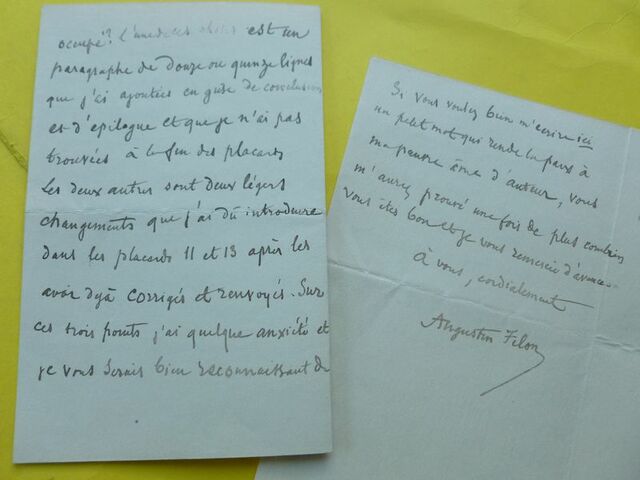 occupé? L'une de ces choses est un
paragraphe de douze ou quinze lignes
que j'ai ajoutées en guise de conclusion
et d'épilogue et que je n'ai pas
trouvées à la fin des placards
Les deux autres sont deux légers
changements que j'ai dû introduire
dans les placards 11 et 13 après les
avoir déjà corrigés et renvoyés. Sur
ces trois points j'ai quelque anxiété et
je vous serais bien reconnaissant de
Si vous voulez bien m'écrire ici
un petit mot qui rende la paix à
ma pauvre âme d'auteur, vous
m'aurez prouvé une fois de plus combien
vous êtes bon et je vous remercie d'avance.
à vous, cordialement
Augustin Filon